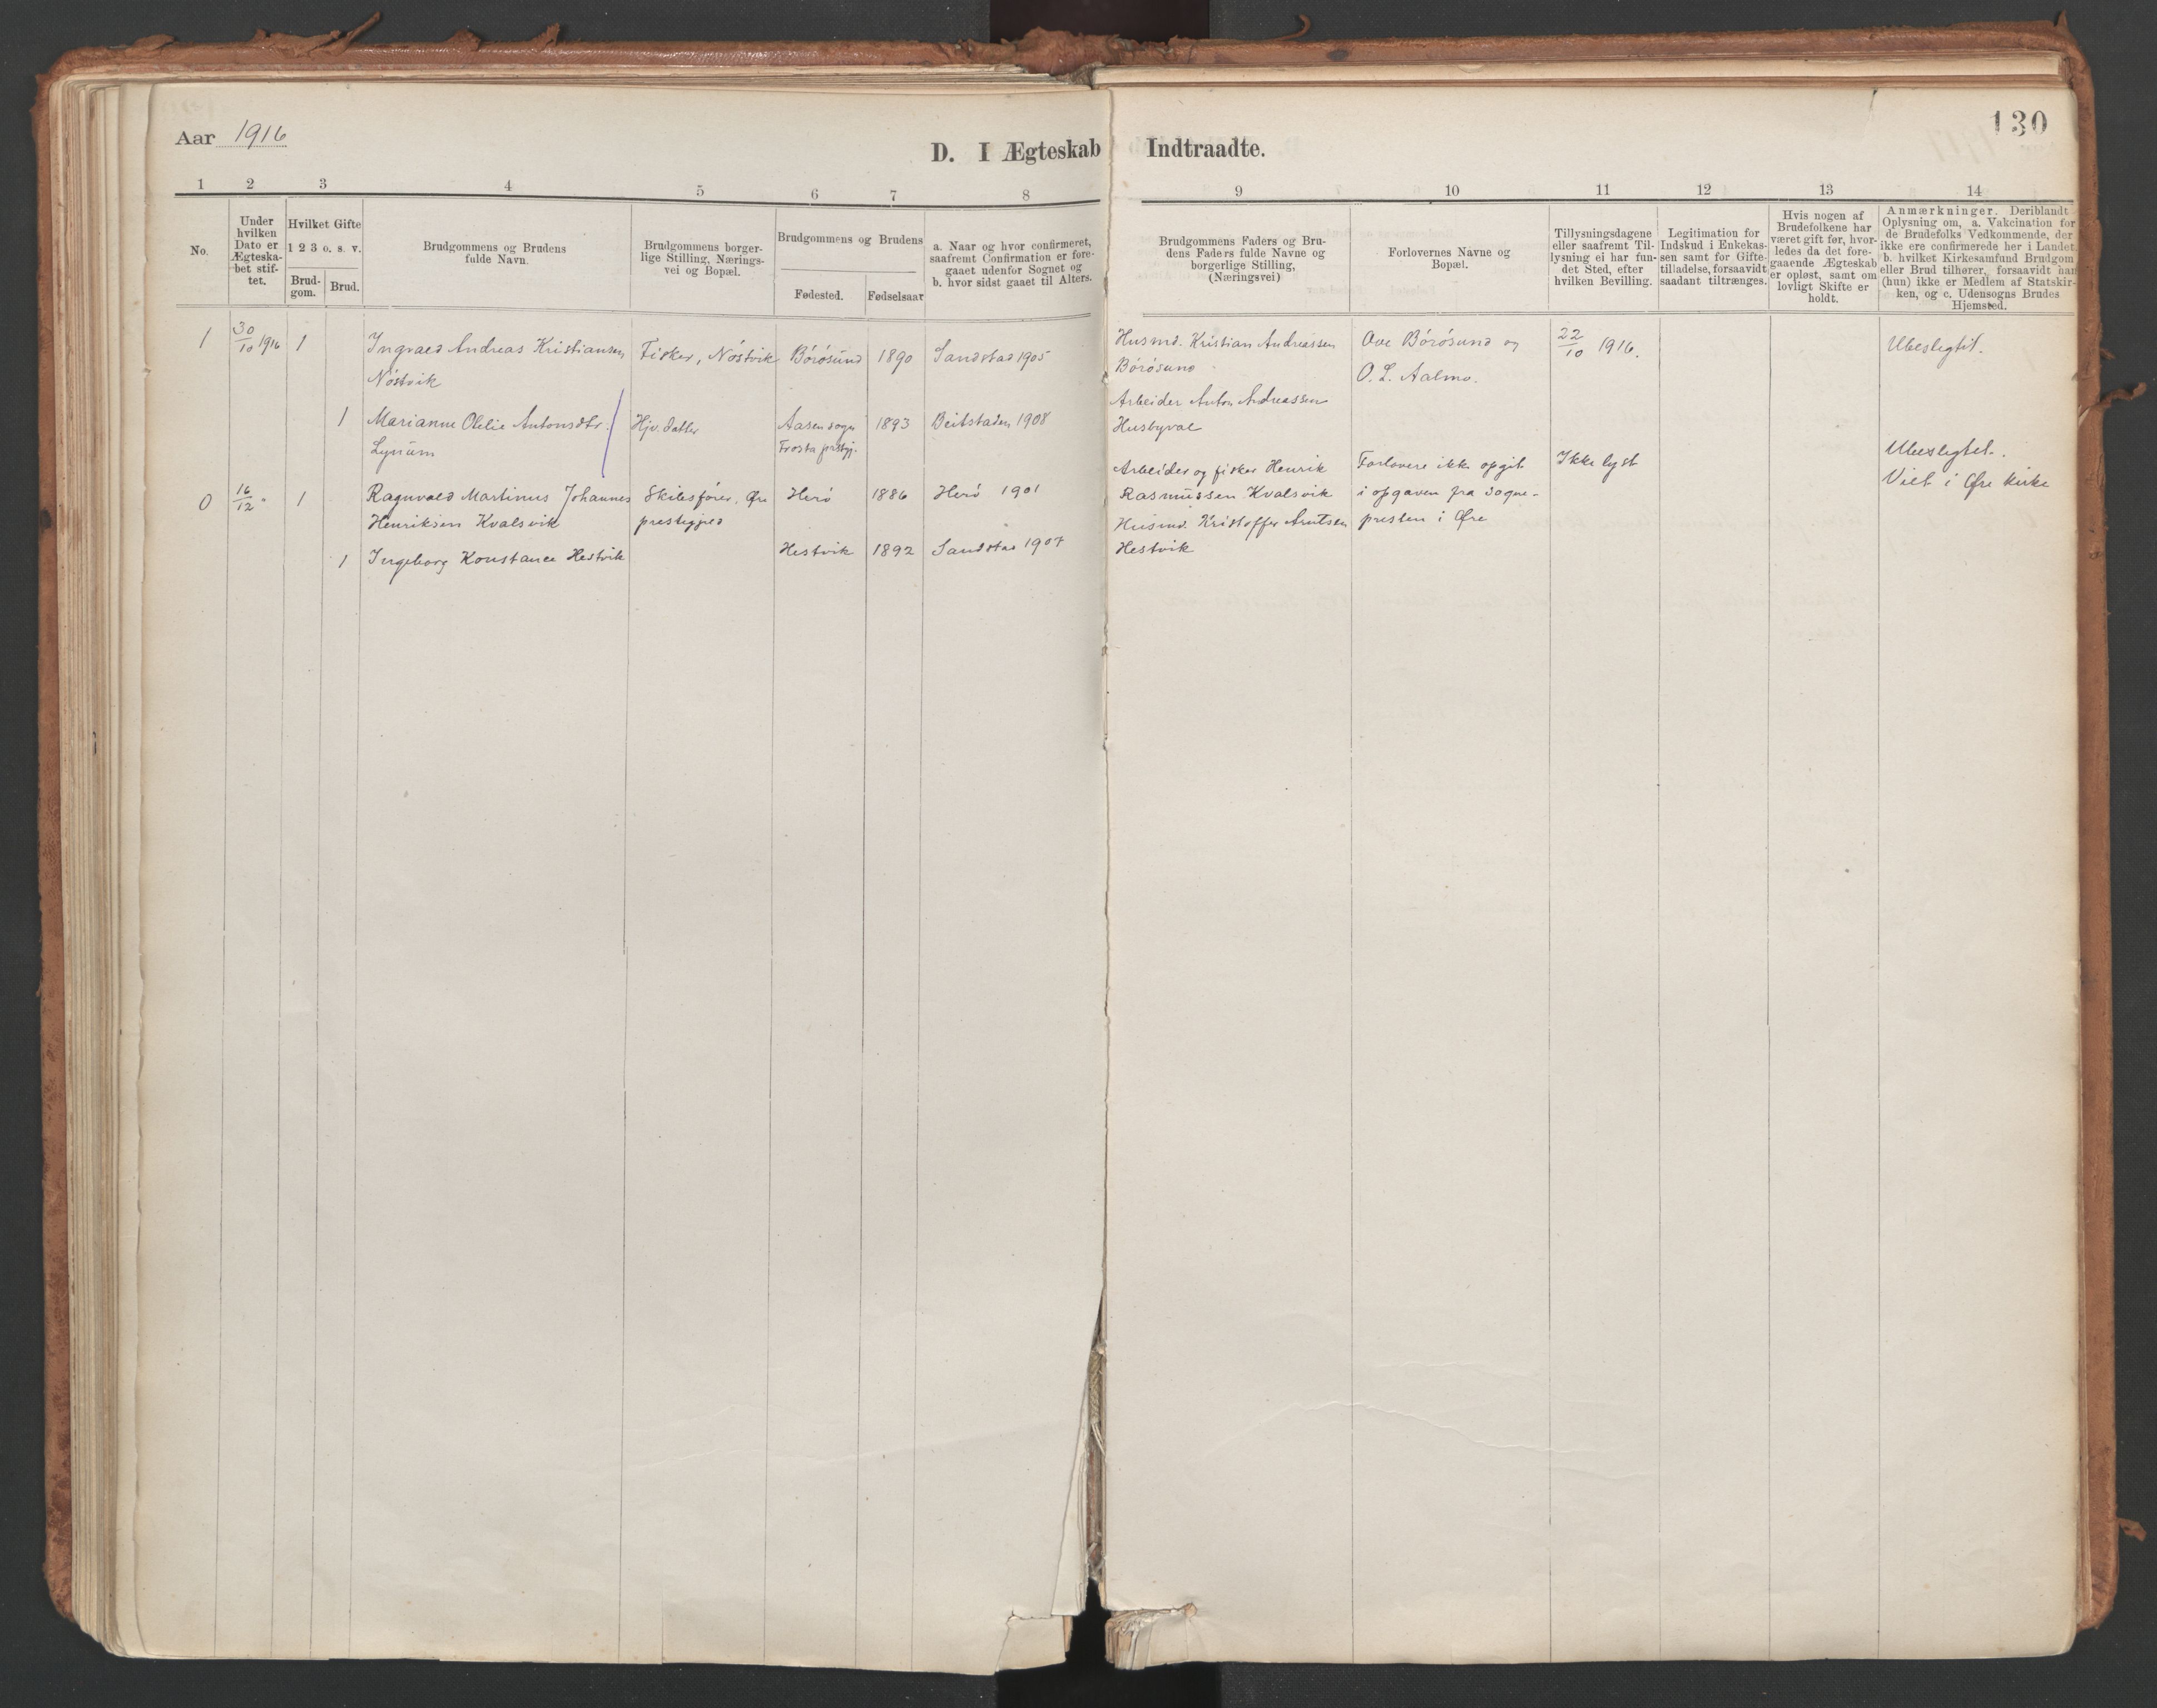 Aar 1916
130
D. I Ægteskab Indtraadte.
1 2 3 4 5 6 7 8 9 10 11 12 13 14
No.
Under hvilken Dato er Ægteska-
bet stif-
tet.
Hvilket Gifte
1 2 3 o. s. v.
Brud-
gom.
Brud.
Brudgommens og Brudens
fulde Navn.
Brudgommens borger-
lige Stilling, Nærings-
vei og Bopæl.
Brudgommens og Brudens
Fødested.
Fødselsaar
a. Naar og hvor confirmeret,
saafremt Confirmation er fore-
gaaet udenfor Sognet og
b. hvor sidst gaaet til Alters.
Brudgommens Faders og Bru-
dens Faders fulde Navne og
borgerlige Stilling,
(Næringsvei)
Forlovernes Navne og
Bopæl.
Tillysningsdagene
eller saafremt Til-
lysning ei har fun-
det Sted, efter
hvilken Bevilling.
Legitimation for
Indskud i Enkekas-
sen samt for Gifte-
tilladelse, forsaavidt
saadant tiltrænges.
Hvis nogen af
Brudefolkene har
været gift før, hvor-
ledes da det fore-
gaaende Ægteskab
er opløst, samt om
lovligt Skifte er
holdt.
Anmærkninger. Deriblandt
Oplysning om, a. Vakcination for
de Brudefolks Vedkommende, der
ikke ere confirmerede her i Landet,
b. hvilket Kirkesamfund Brudgom
eller Brud tilhører, forsaavidt han
(hun) ikke er Medlem af Statskir-
ken, og c. Udensogns Brudes
Hjemsted.
1 30/10 1916 1 Ingvald Andreas Kristiansen Fisker, Nöstvik Börösund 1890 Sandstad 1905 Husmd. Kristian Andreassen Ove Börösund og 22/10 1916. Ubeslegtet.
Nöstvik Börösund O. L. Aalmo.
Arbeider Anton Andreassen
1 Marianne Olelie Antonsdtr. Hjv. datter Aasen sogn 1893 Beitstaden 1908 Husbyval
Lynum Frosta prestgj.
Ubeslegtet.
Arbeider og fisker Henrik Forlovere ikke opgit Ikke lyst
Viet i Øre kirke
0 16/12 " 1 Ragnvald Martinus Johannes Skibsfører, Øre Herö 1886 Herö 1901 Rasmussen Kvalsvik i opgaven fra sogne-
Henriksen Kvalsvik prestegjeld Husmd. Kristoffer Arntsen presten i Øre
1 Ingeborg Konstance Hestvik Hestvik 1892 Sandstad 1907 Hestvik